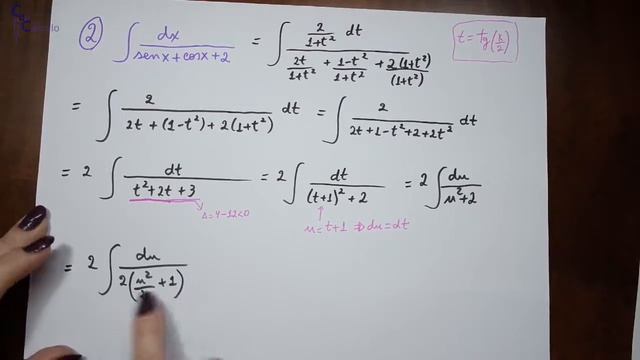 2 ∫ dx/(senx+cosx+2) = ∫ (2/(1+t²) dt)/(2t/(1+t²) + (1-t²)/(1+t²) + 2(1+t²)/(1+t²)) t=tg(x/2)
= ∫ 2/(2t+(1-t²)+2(1+t²)) dt = ∫ 2/(2t+1-t²+2+2t²) dt
= 2 ∫ dt/(t²+2t+3) = 2 ∫ dt/((t+1)²+2) = 2 ∫ du/(u²+2)
Δ=4-12<0
u=t+1 ⇒ du=dt
= 2 ∫ du/(2(u²/ +1))